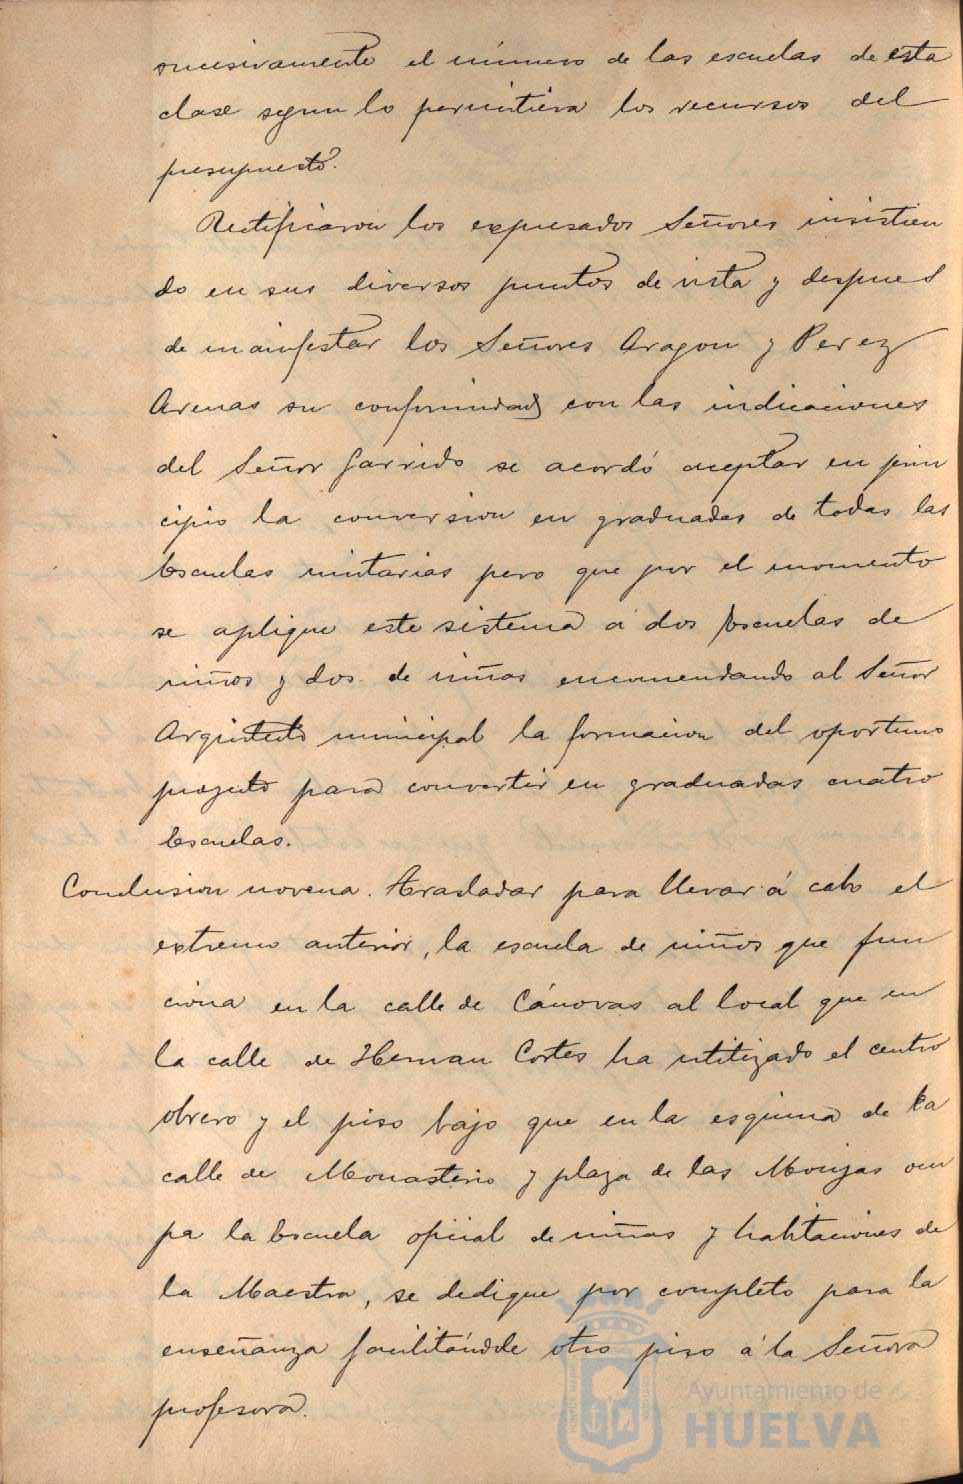 sucesivamente el número de las escuelas de esta
clase segun lo permitiera los recursos del
presupuesto.
Rectificaron los expresados Señores insistien
do en sus diversos puntos de vista y despues
de manifestar los Señores Aragon y Perez
Arenas su conformidad con las indicaciones
del Señor Garrido se acordó aceptar en prin
cipio la conversion en graduadas de todas las
Escuelas unitarias pero que por el momento
se aplique este sistema á dos Escuelas de
niños y dos de niñas encomendando al Señor
Arquitecto municipal la formacion del oportuno
proyecto para convertir en graduadas cuatro
Escuelas.
Conclusion novena. Trasladar para llevar á cabo el
extremo anterior, la escuela de niños que fun
ciona en la calle de Cánovas al local que en
la calle de Hernan Cortes ha utilizado el centro
obrero y el piso bajo que en la esquina de la
calle de Monasterio y plaza de las Monjas ocu
pa la Escuela oficial de niñas y habitaciones de
la Maestra, se dedique por completo para la
enseñanza facilitándole otro piso á la Señora
profesora.
Ayuntamiento de
HUELVA